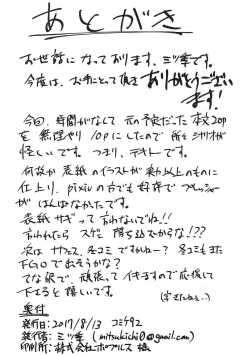 あとがき
お世話になっております、ミツ季です。
今度は、お手にとって頂き ありがとうござい
ます!
今回、時間がなくて 元の予定だった本文20p
を 無理やり 10pにしたので 所々シナリオが
怪しいです。つまり、テキトーです。
何故か 表紙のイラストが 予想以上のものに
仕上り、pixivの方でも好評で プレッシャー
が はんぱなかったです。
表紙サギって 言わないでね!!
言われたら スゲェ 落ち込むからな!???
次は サンクス、冬コミ ですかねー? 冬コミもまた
FGOで おそうかな?
てな訳で、頑張って イキますので 応援して
下さると 嬉しいです。
奥付
発行日:2017/8/13 コミケ92
発行者:ミツ季 (mitsukichi0@gmail.com)
印刷所:株式会社ポプルス 様